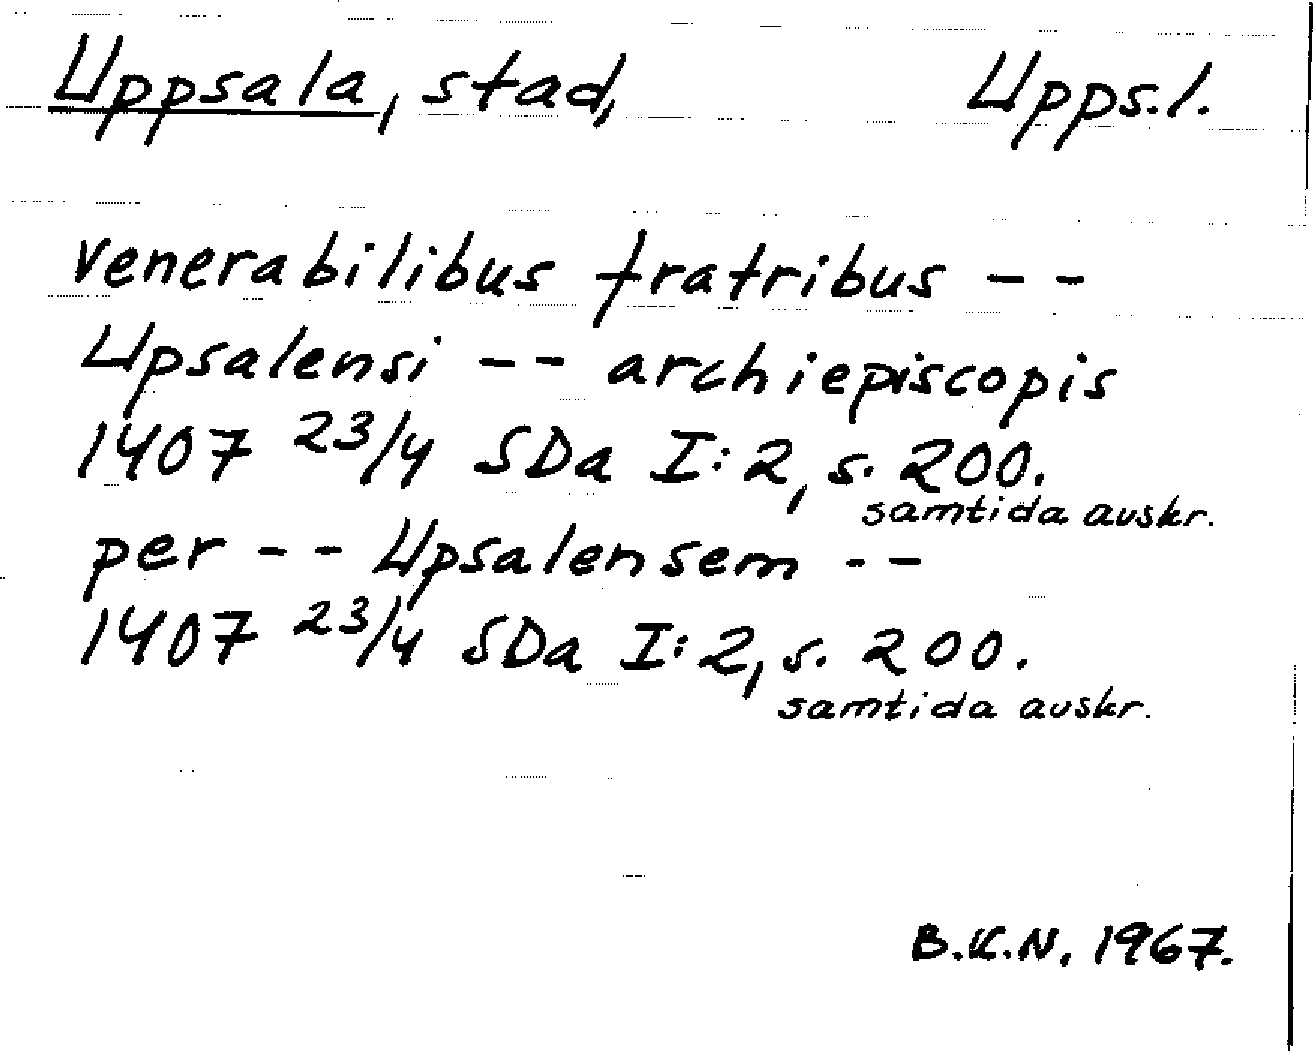 Uppsala, stad, Upps.l.
venerabilibus fratribus --
Upsalensi -- archiepiscopis
1407 23/4 SDa I:2, s. 200.
samtida avskr.
per -- Upsalensem --
1407 23/4 SDa I:2, s. 200.
samtida avskr.
B.K.N. 1967.